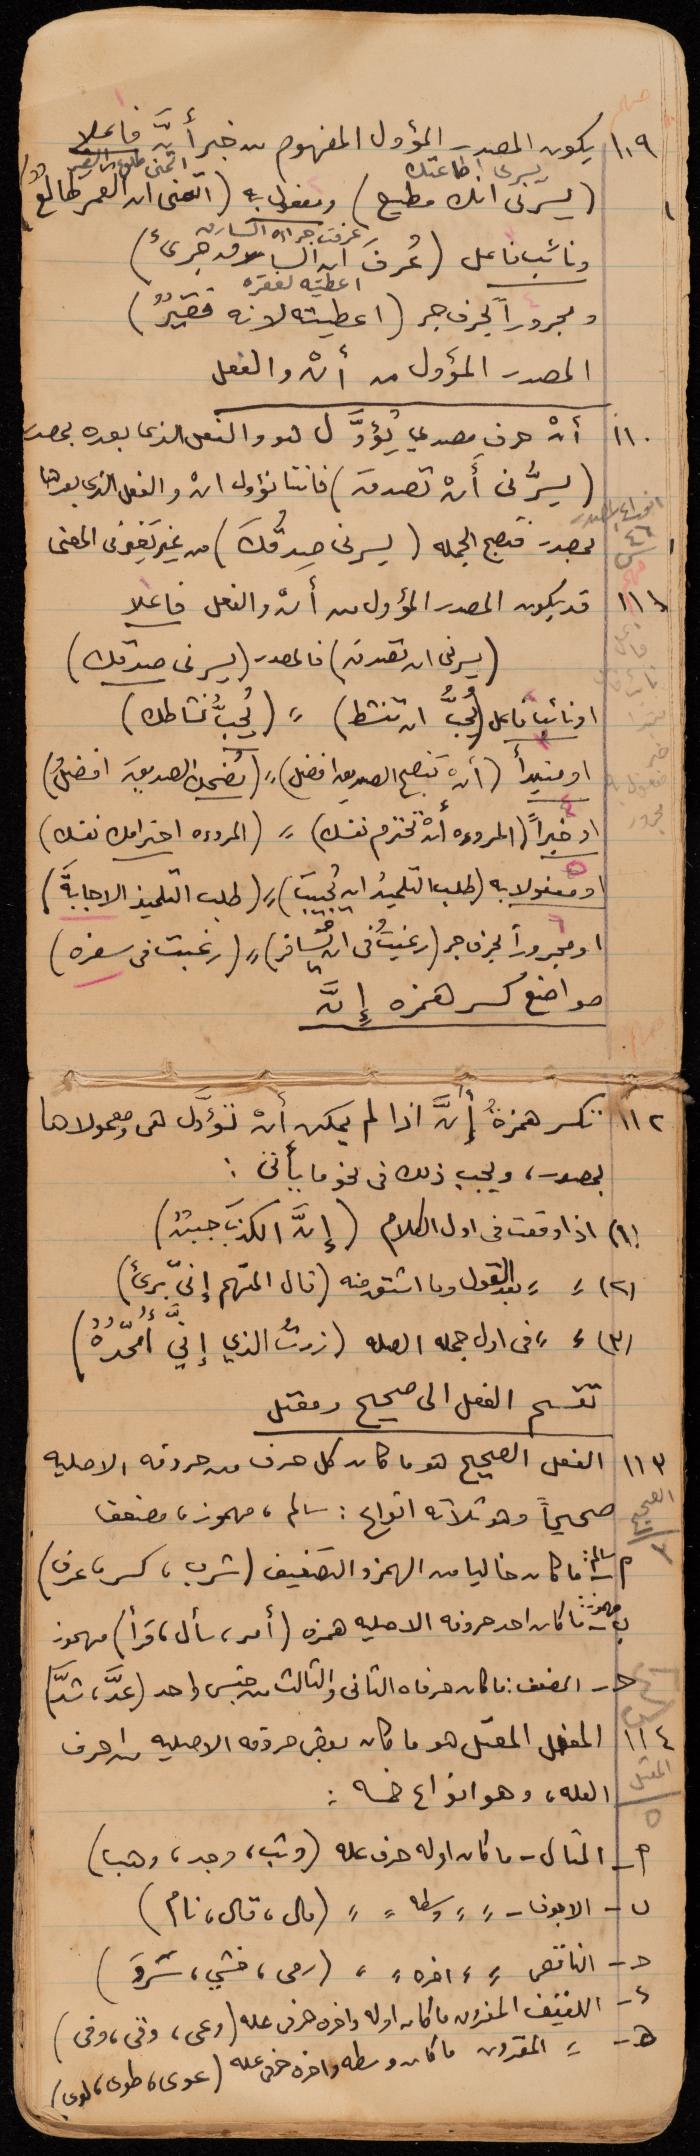 ١٠٩ يكون المصدر المؤول المفهوم من خبر أنَّ فاعلا
يسرني اطاعتك
(يسرني انك مطيع) ومفعول به (اتمنى ان القمر طالعٌ)
عرفت جراءة السارق
ونائب فاعل (عُرفَ ان السارق جريءٌ)
اعطيته لفقره
ومجروراً بحرف جر (اعطيته لانه فقيرٌ)
المصدر المؤول من أنْ والفعل
١١٠ أنْ حرف مصدري يُؤوَّل هو والفعل الذي بعده بمصدر
(يسرُّني أنْ تصدق) فاننا نؤول انْ والفعل الذي بعدها
بمصدر فتصبح الجمله (يسرني صِدقُكَ) من غير تغير في المعنى
١١١ قد يكون المصدر المؤول من أنْ والفعل فاعلا
(يسرني ان تصدق) فالمصدر (يسرني صدقك)
او نائب فاعل (يُحَبُّ ان تنشط) ” (يُحَبُّ نشاطك)
او مبتدأ (أنْ تنصح الصديق افضل) ” (نصحك الصديق افضلُ)
او خبراً (المروءه أنْ تحترم نفسك) ” (المروءه احترامك نفسك)
او مفعولا به (طلب التلميذُ ان يُجيبَ) ” (طلب التلميذ الاجابةَ)
او مجروراً بحرف جر (رغبتُ في ان يُسافر) ” (رغبت في سفره)
مواضع كسر همزه إِنَّ
١١٢ تكسر همزةُ إِنَّ اذا لم يمكن أنْ تؤوَّل هي ومعمولاها
بمصدر، ويجب ذلك في نحو ما يأتي :
(١) اذا وقعت في اول الكلام (إِنَّ الكذبَ جبنٌ)
(٢) ” ” بعد القول وما اشتق منه (قال المتهم إنيّ بريءٌ)
(٣) ” ” في اول جمله الصله (زرتُ الذي إنيِّ أُمجّدُهُ)
تقسيم الفعل الى صحيح ومعتل
١١٣ الفعل الصحيح هو ما كان كل حرف من حروفه الاصليه
الصحيح
٣
صحيحاً وهو ثلاثه انواع : سالم، مهموز، مضعف
م - سالم: ما كان خاليا من الهمز والتضعيف (شرب، كسر، عرف)
ب - مهموز: ما كان احد حروفه الاصليه همزه (أمر، سأل، قرأ) مهموز
ح - المضعف: ما كان حرفاه الثاني والثالث من جنس واحد (عدَّ، شدَّ)
١١٤ الفعل المعتل هو ما كان بعض حروفه الاصليه من احرف
المعتل
٥
العله، وهو انواع خمسه :
م - المثال - ما كان اوله حرف عله (وثب، وجد، وهب)
ب - الاجوف - ” ” وسطه ” ” (مال، قال، نام)
ح - الناقص ” ” اخره ” ” (رمى، خشي، سَرُوَ)
ء - اللفيف المفروق ما كان اوله واخره حرفي عله (وعى، وقى، وفى)
هـ - ” المقرون ما كان وسطه واخره حرفي عله (عوى، طوى، لوى)